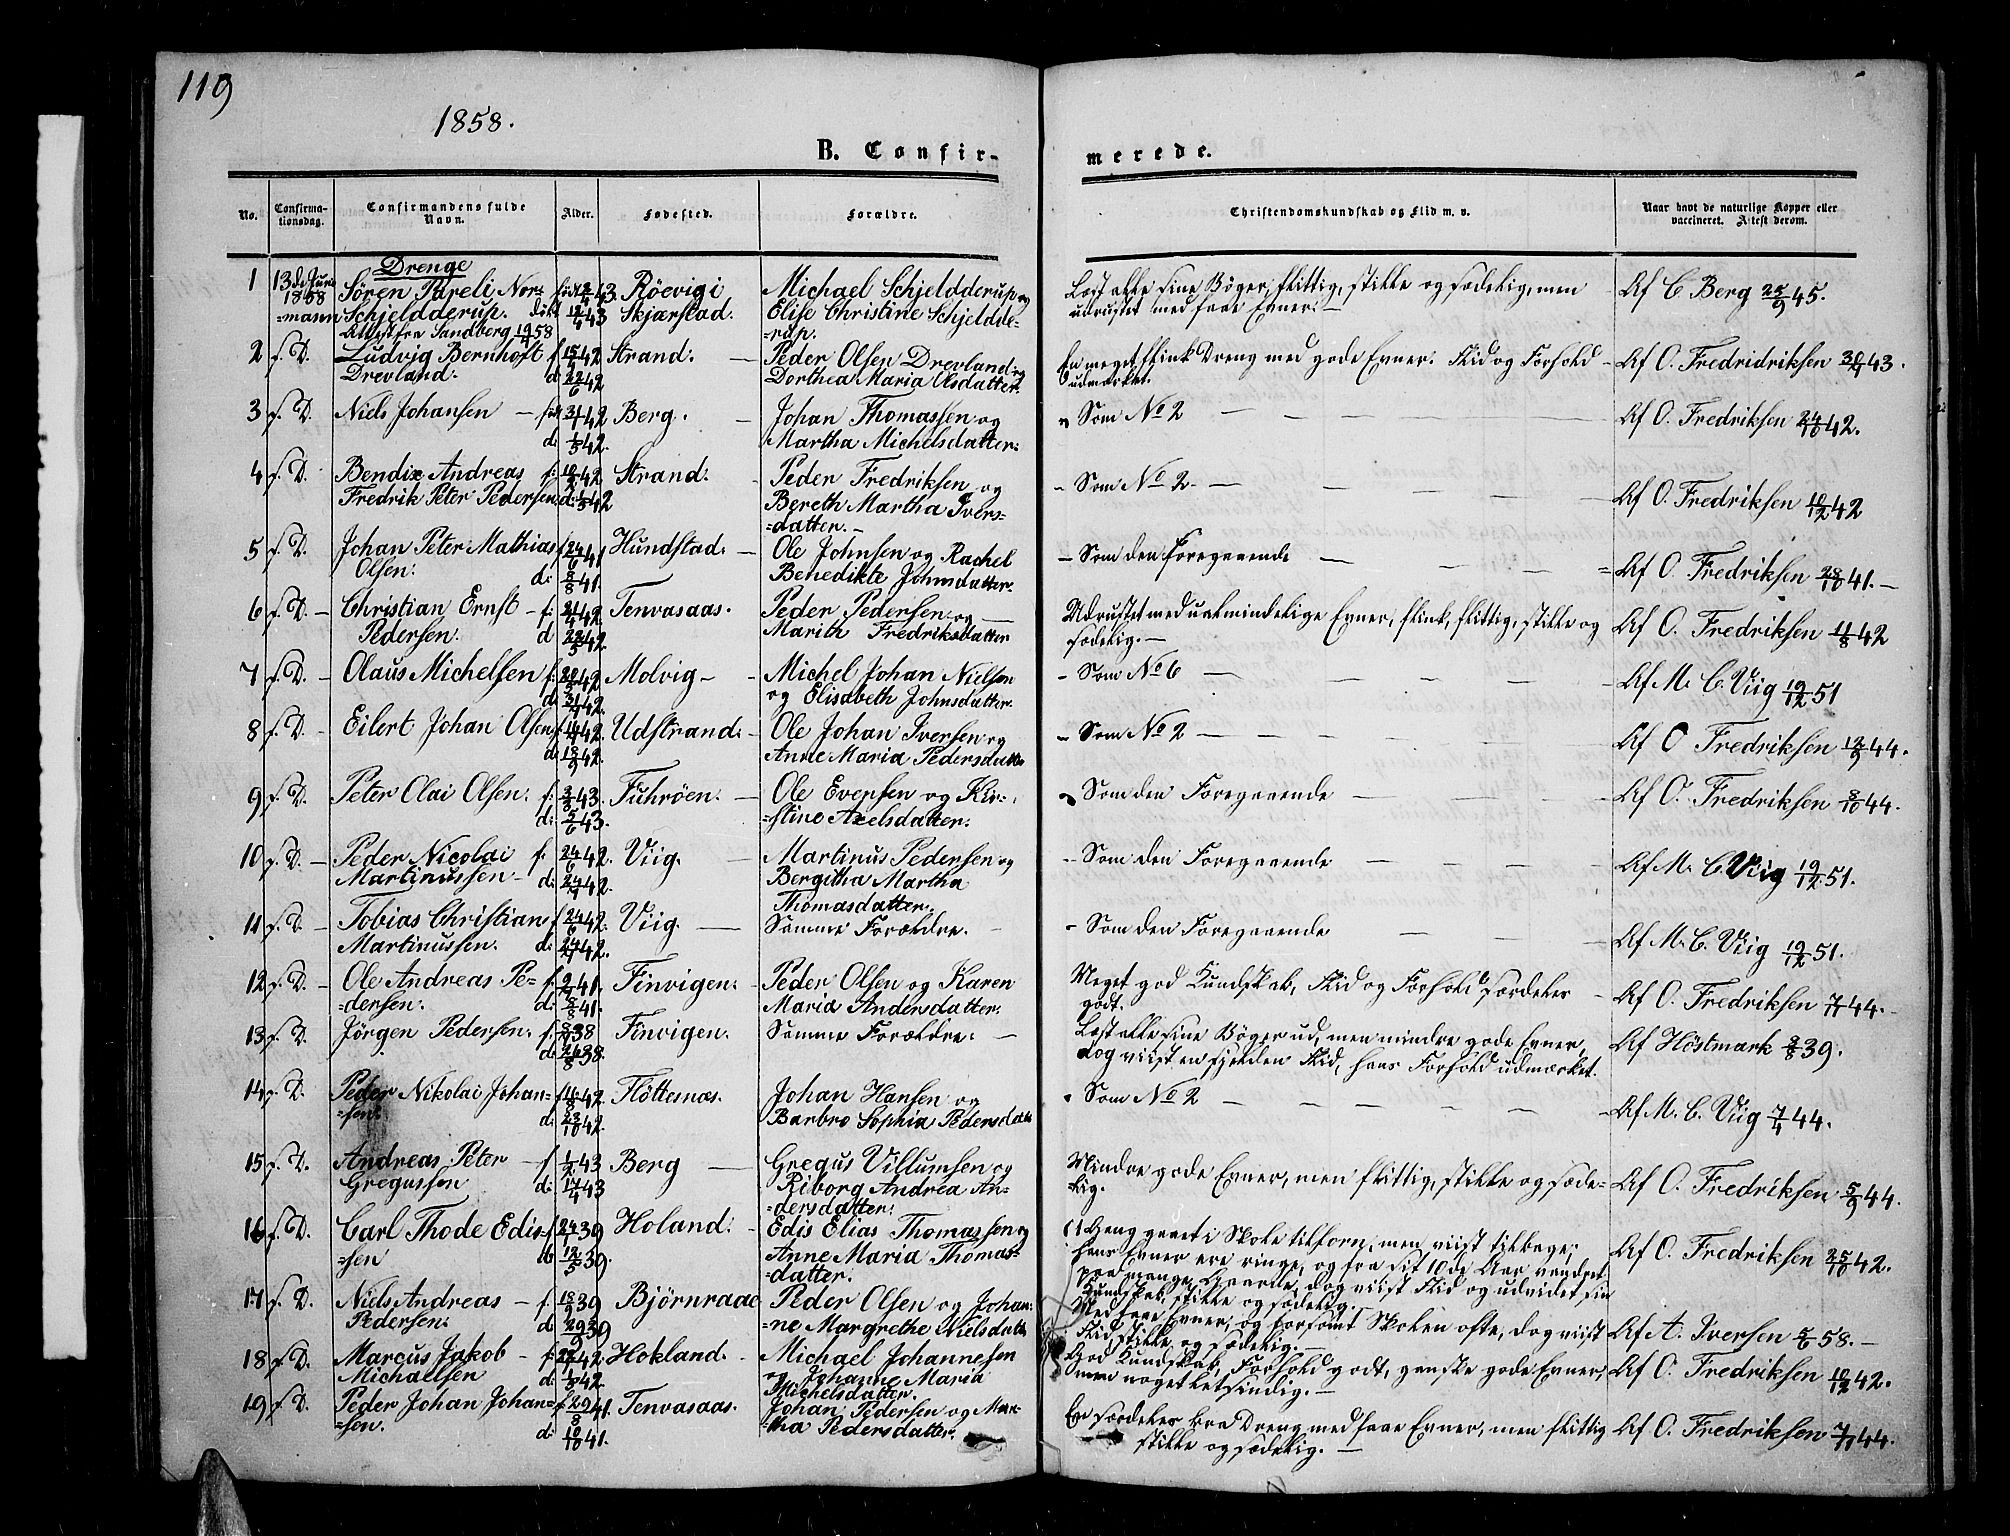 119
1858.
B. Confir-
merede.
No.
Confirma-
tionsdag.
Confirmandens fulde
Navn.
Alder.
Fødested.
Forældre.
Christendomskundskab og Flid m. v.
Naar havt de naturlige Kopper eller
vaccineret. Attest derom.
Drenge
1 13de Juni Sören Pareli Nor- Röevig i Michael Schjeldderup og
1858
=mann Schjeldderup. Skjærstad. Elise Christine Schjeldde-
Attest fra Sandberg
=rup.
Læst alle sine Bøger, flittig, stille og sædelig, men
udrustet med faae Evner. —
Af C Berg 25/9 45.
2 s. D. Ludvig Bernhoft Strand. — Peder Olsen Drevland og
Drevland. d 22/6 42 Dorthea Maria Olsdatter.
En meget flink Dreng med gode Evner. Flid og Forhold
udmærket.
Af O. Fredridriksen 30/9 43.
3 s. D. Niels Johansen — Berg. — Johan Thomassen og
d: 1/5 42. Martha Michelsdatter.
„ Som No 2 —
Af O. Fredriksen 24/10 42.
4 s. D. Bendix Andreas f: Strand. Peder Fredriksen og
Fredrik Peter Pedersen d: Bereth Martha Ivers-
=datter. —
- Som No 2. —
Af O. Fredriksen 10/12 42
5 s. D. Johan Peter Mathias f 24/6 41 Hundstad. — Ole Johnsen og Rachel
Olsen. d: 8/8 41. Benedikte Johnsdatter.
- Som den Foregaaende —
Af O. Fredriksen 28/10 41. —
6 s. D. — Christian Ernst — f: Tenvasaas. Peder Pedersen og —
Pedersen. d 22/5 42. Marith Fredriksdatter
Udrustet med ualmindelige Evner, flink, flittig, stille og
sædelig. —
Af O. Fredriksen 11/8 42
7 s. D. — Olaus Michelsen f: Molvig — Michel Johan Nielsen
og Elisabeth Johnsdatter.
- Som No 6 —
Af M. C. Viig 19/12 51
8 s. D. — Eilert Johan Olsen f Udstrand. — Ole Johan Iversen og
d 18/9 42. Anne Maria Pedersdatter
- Som No 2 —
Af O Fredriksen 12/9 44.
9 s. D. Peter Olai Olsen. f: Fuhröen. — Ole Evensen og Kir-
d: 5/6 43. =stine Axelsdatter.
Som den Foregaaende —
Af O. Fredriksen 8/10 44.
10 s. D. — Peder Nicolai f. 24/6 42. Viig. — Martinus Pedersen og
Martinussen — d: 24/7 42. Bergitha Martha
Thomasdatter.
- Som den Foregaaende —
Af M. C. Viig 19/12 51.
11 s. D. — Tobias Christian f 24/6 42. Viig. — Samme Forældre. —
Martinussen. d: 24/7 42.
- Som den Foregaaende —
Af M. C. Viig 19/12 51.
12 s. D. — Ole Andreas Pe- f. 2/7 41. Finvigen. — Peder Olsen og Karen
=dersen. d: 8/8 41. Maria Andersdatter.
Meget god Kundskab, Flid og Forhold særdeles
godt.
Af O. Fredriksen 44. —
13 s. D. — Jörgen Pedersen. f. 38 Finvigen. Samme Forældre. —
d: 24/8 38.
Læst alle sine Bøger ud, men mindre gode Evner,
dog viist en sjelden Flid, hans Forhold udmærket.
Af Höstmark 39.
14 s. D. Peder Nikolai Johan= f 42. Flöttenæs. Johan Hansen og
=sen. d: 23/10 42. Barbro Sophia Pedersdatter
Som No 2 —
Af M. C. Viig 7/4 44.
15 s. D. Andreas Peter — f 1/2 43 Berg — Gregus Villumsen og
Gregussen d: 17/4 43 Riborg Andrea An-
=dersdatter.
Mindre gode Evner, men flittig, stille og sæde=
lig.
Af O. Fredriksen 5/9 44.
16 s. D. Carl Thode Edis= f 24/ 39 Holand. Edis Elias Thomassen og
=sen 12/5 39. Anne Maria Thomas=
=datter.
1 Gang gaaet i Skole tilforn, men viist tilbage;
hans Evner ere ringe, og fra sit 10de Aar vandret
paa mange Gaarde, dog viist Flid og udvidet sin
Kundskab, stille og sædelig.
Af O. Fredriksen 25/10 42.
17 s. D. Niels Andreas — f. 18/ 39 Björnraae Peder Olsen og Johan=
Pedersen. d. 29/ 39 =ne Margrethe Nielsdatter
Med faae Evner, og forsømt Skolen ofte, dog viist
Flid, stille og sædelig. —
Af A. Iversen 5/6 58. —
18 s. D. Marcus Jakob — f: 42 Hokland. — Michael Johannesen
Michaelsen d: 42. og Johanne Maria
Michelsdatter.
God Kundskab, Forhold godt, ganske gode Evner,
men noget letsindig. —
Af O. Fredriksen 10/12 42.
19 s. D. Peder Johan Johan= f 29/8 41. Tenvasaas. Johan Pedersen og Mar=
=sen. d: 10/10 41. =tha Pedersdatter.
En særdeles bra Dreng med faae Evner, men flittig
stille og sædelig. —
Af O. Fredriksen 44.